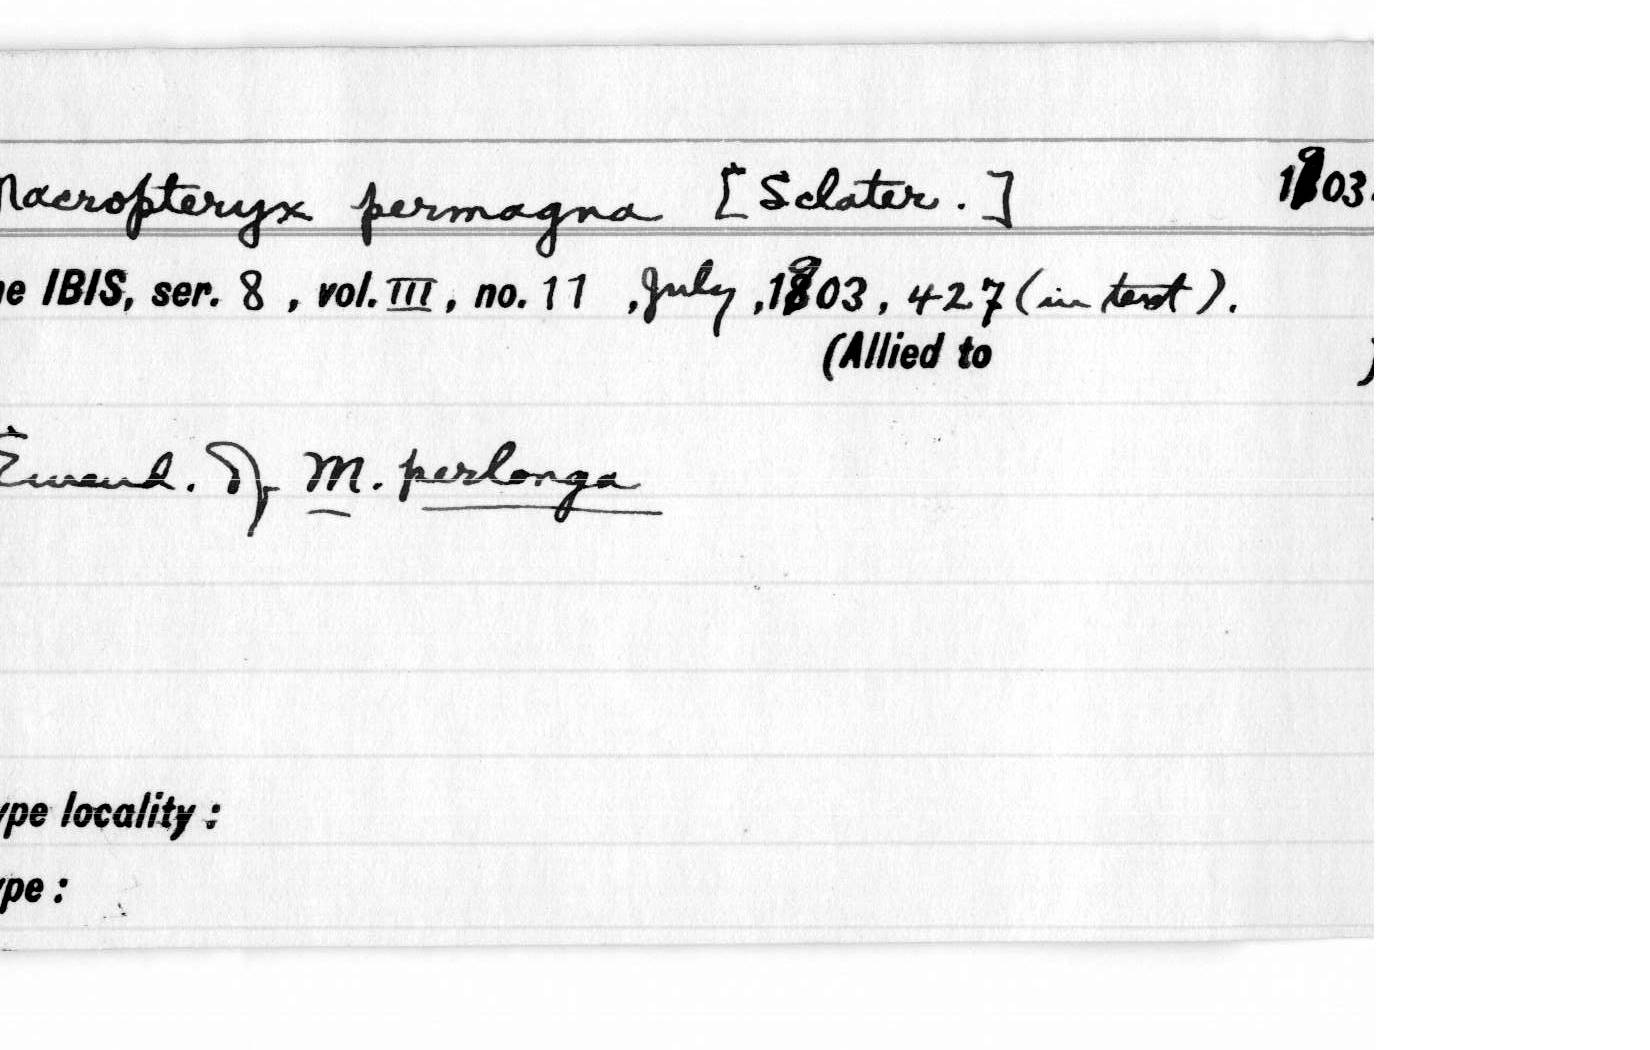 Macropteryx permagna [Sclater.] 1903.
he IBIS, ser. 8, vol. III, no. 11, July, 1903, 427 (in text).
(Allied to )
Emend. of M. perlonga
ype locality :
ype :